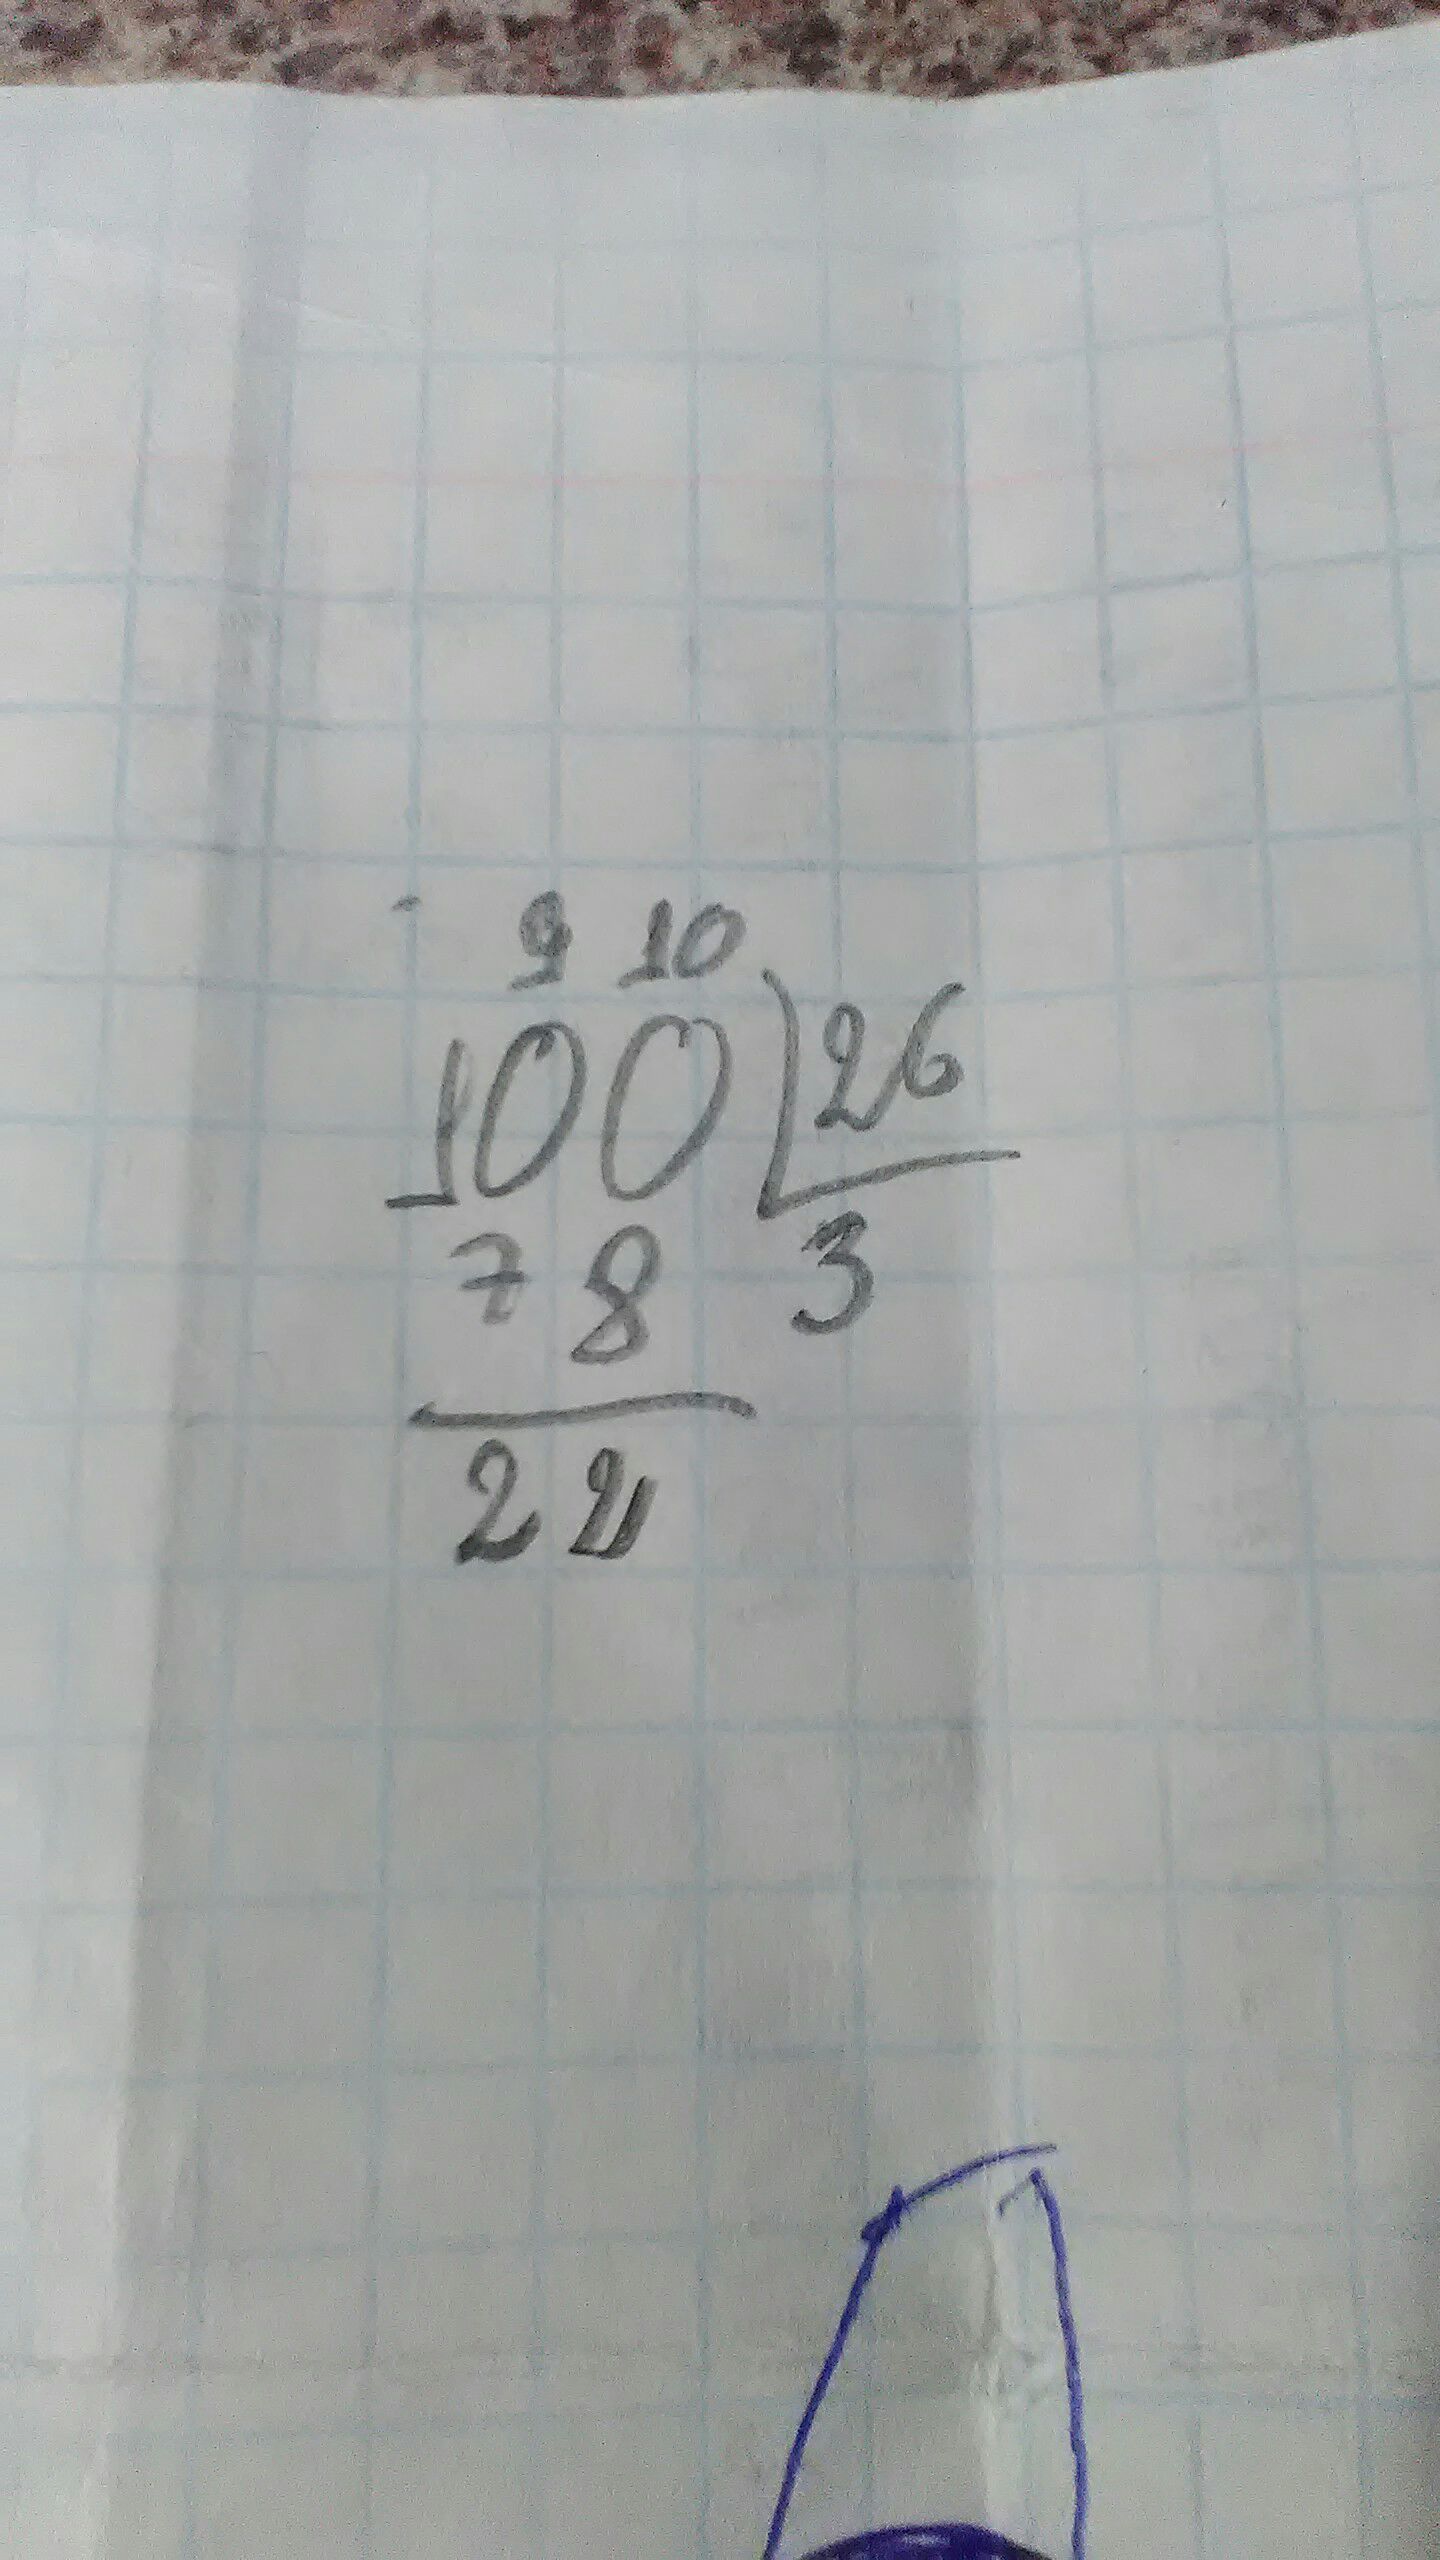 9 10
100 26
78 3
22